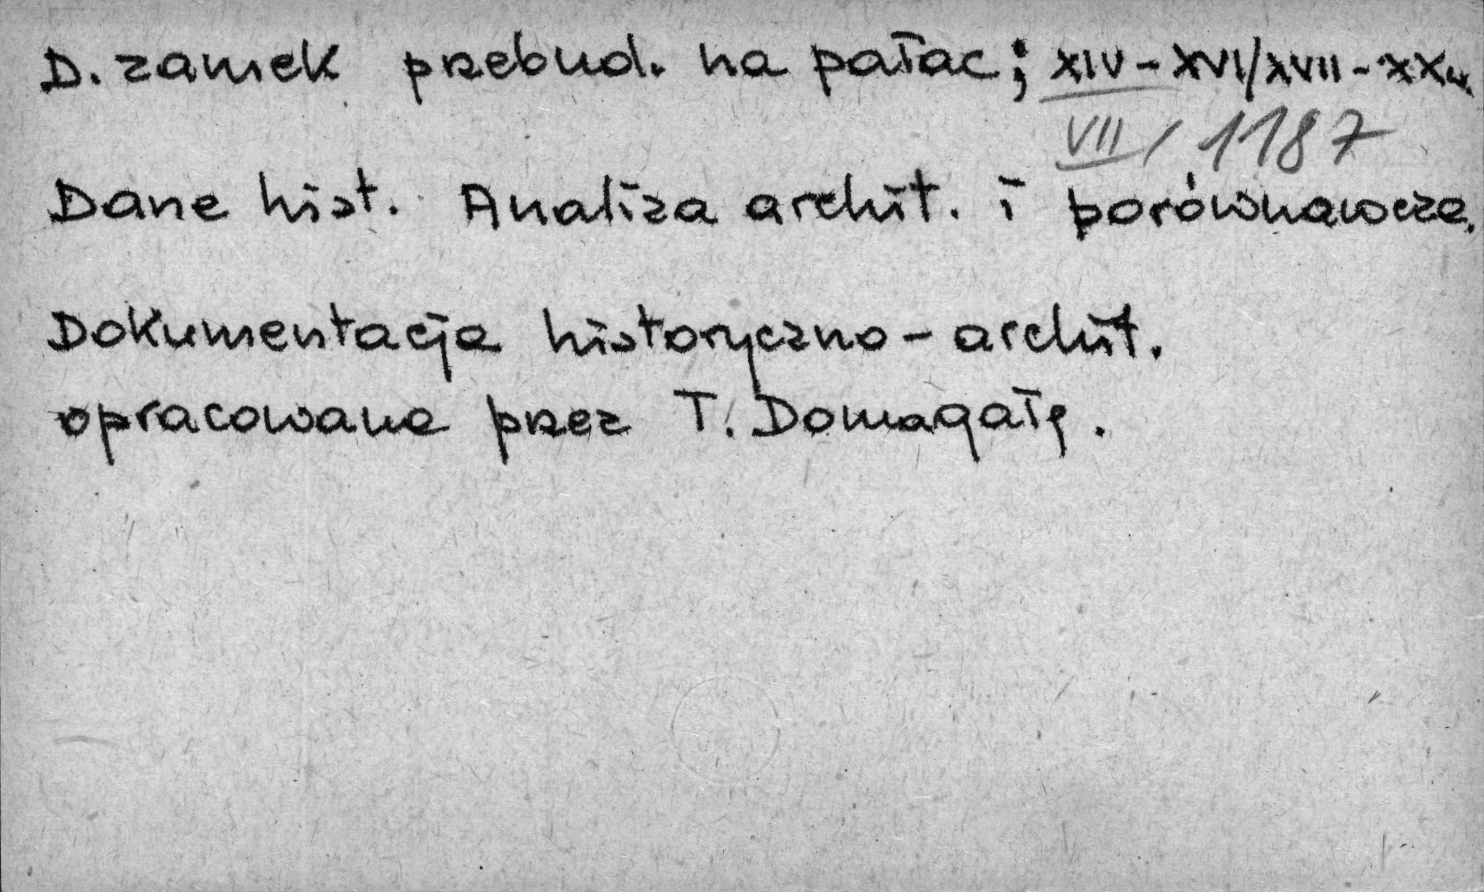 D. zamek przebud. na pałac; XIV - XVI/XVII - XX w.
VII / 1187
Dane hist. Analiza archit. i porównawcza.
Dokumentacja historyczno - archit.
opracowana przez T. Domagałę.